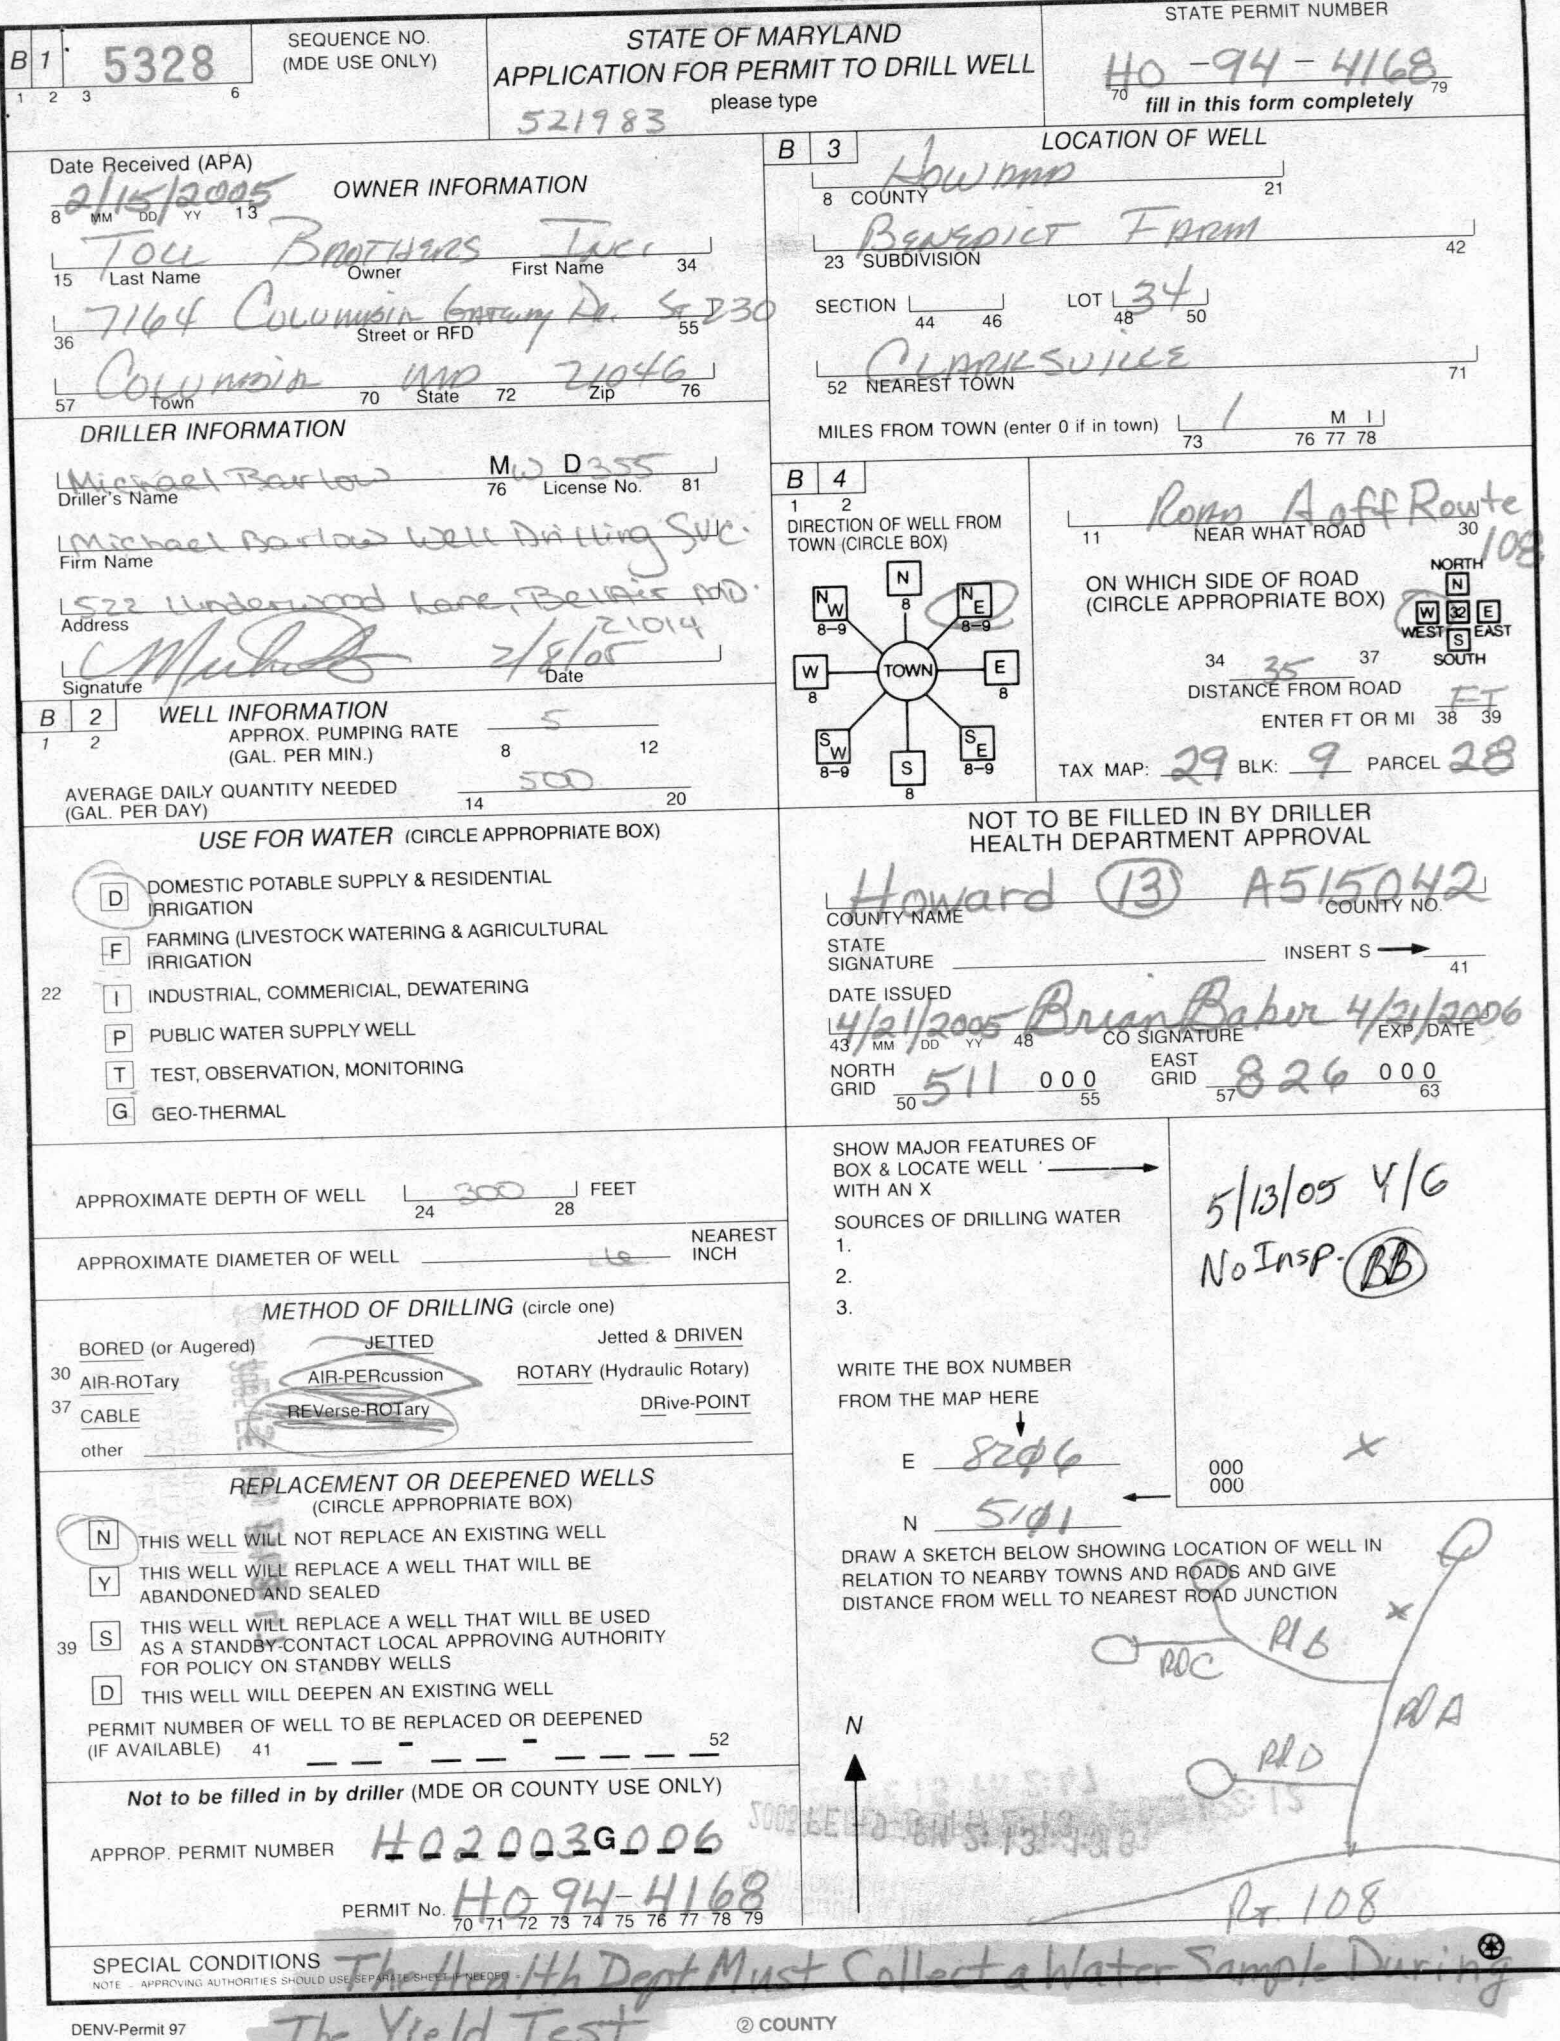 B 1 5328
1 2 3 6
SEQUENCE NO.
(MDE USE ONLY)
STATE OF MARYLAND
APPLICATION FOR PERMIT TO DRILL WELL
please type
521983
STATE PERMIT NUMBER
HO - 94 - 4168
70 79
fill in this form completely
Date Received (APA)
2/15/2005
8 MM DD YY 13
OWNER INFORMATION
TOLL BROTHERS INC.
15 Last Name Owner First Name 34
7164 COLUMBIA GATEWAY DR. ST 230
36 Street or RFD 55
COLUMBIA MD 21046
57 Town 70 State 72 Zip 76
DRILLER INFORMATION
Michael Barlow MW D 355
Driller's Name 76 License No. 81
Michael Barlow Well Drilling Svc.
Firm Name
522 Underwood Lane, BelAir MD.
Address 21014
2/8/05
Signature Date
B 2 WELL INFORMATION
1 2
APPROX. PUMPING RATE 5
(GAL. PER MIN.) 8 12
AVERAGE DAILY QUANTITY NEEDED 500
(GAL. PER DAY) 14 20
USE FOR WATER (CIRCLE APPROPRIATE BOX)
D DOMESTIC POTABLE SUPPLY & RESIDENTIAL
IRRIGATION
F FARMING (LIVESTOCK WATERING & AGRICULTURAL
IRRIGATION
22 I INDUSTRIAL, COMMERICIAL, DEWATERING
P PUBLIC WATER SUPPLY WELL
T TEST, OBSERVATION, MONITORING
G GEO-THERMAL
APPROXIMATE DEPTH OF WELL 300 FEET
24 28
APPROXIMATE DIAMETER OF WELL 6 NEAREST
INCH
METHOD OF DRILLING (circle one)
BORED (or Augered) JETTED Jetted & DRIVEN
30 AIR-ROTary AIR-PERcussion ROTARY (Hydraulic Rotary)
37 CABLE REVerse-ROTary DRive-POINT
other
REPLACEMENT OR DEEPENED WELLS
(CIRCLE APPROPRIATE BOX)
N THIS WELL WILL NOT REPLACE AN EXISTING WELL
Y THIS WELL WILL REPLACE A WELL THAT WILL BE
ABANDONED AND SEALED
39 S THIS WELL WILL REPLACE A WELL THAT WILL BE USED
AS A STANDBY-CONTACT LOCAL APPROVING AUTHORITY
FOR POLICY ON STANDBY WELLS
D THIS WELL WILL DEEPEN AN EXISTING WELL
PERMIT NUMBER OF WELL TO BE REPLACED OR DEEPENED
(IF AVAILABLE) 41 - - 52
Not to be filled in by driller (MDE OR COUNTY USE ONLY)
APPROP. PERMIT NUMBER HO2003G006
PERMIT No. HO-94-4168
70 71 72 73 74 75 76 77 78 79
B 3 LOCATION OF WELL
HOWARD
8 COUNTY 21
BENEDICT FARM
23 SUBDIVISION 42
SECTION LOT 34
44 46 48 50
CLARKSVILLE
52 NEAREST TOWN 71
MILES FROM TOWN (enter 0 if in town) 1 M I
73 76 77 78
B 4
1 2
DIRECTION OF WELL FROM
TOWN (CIRCLE BOX)
N
8
NW
8-9
NE
8-9
W
8
TOWN
E
8
SW
8-9
S
8
SE
8-9
ROAD A off Route
108
11 NEAR WHAT ROAD 30
ON WHICH SIDE OF ROAD
(CIRCLE APPROPRIATE BOX)
NORTH
N
W 32 E
WEST S EAST
SOUTH
34 35 37
DISTANCE FROM ROAD
FT
ENTER FT OR MI 38 39
TAX MAP: 29 BLK: 9 PARCEL 28
NOT TO BE FILLED IN BY DRILLER
HEALTH DEPARTMENT APPROVAL
Howard 13 A515042
COUNTY NAME COUNTY NO.
STATE
SIGNATURE INSERT S
41
DATE ISSUED
4/21/2005 Brian Baker 4/21/2006
43 MM DD YY 48 CO SIGNATURE EXP. DATE
NORTH
GRID 511 000
50 55
EAST
GRID 826 000
57 63
SHOW MAJOR FEATURES OF
BOX & LOCATE WELL
WITH AN X
SOURCES OF DRILLING WATER
1.
2.
3.
5/13/05 Y/G
No Insp. BB
WRITE THE BOX NUMBER
FROM THE MAP HERE
E 8206
N 5101
X
000
000
DRAW A SKETCH BELOW SHOWING LOCATION OF WELL IN
RELATION TO NEARBY TOWNS AND ROADS AND GIVE
DISTANCE FROM WELL TO NEAREST ROAD JUNCTION
X
RD B
RDC
RD A
RD D
N
RT. 108
SPECIAL CONDITIONS The Health Dept Must Collect a Water Sample During
NOTE - APPROVING AUTHORITIES SHOULD USE SEPARATE SHEET IF NEEDED
The Yield Test
DENV-Permit 97
② COUNTY